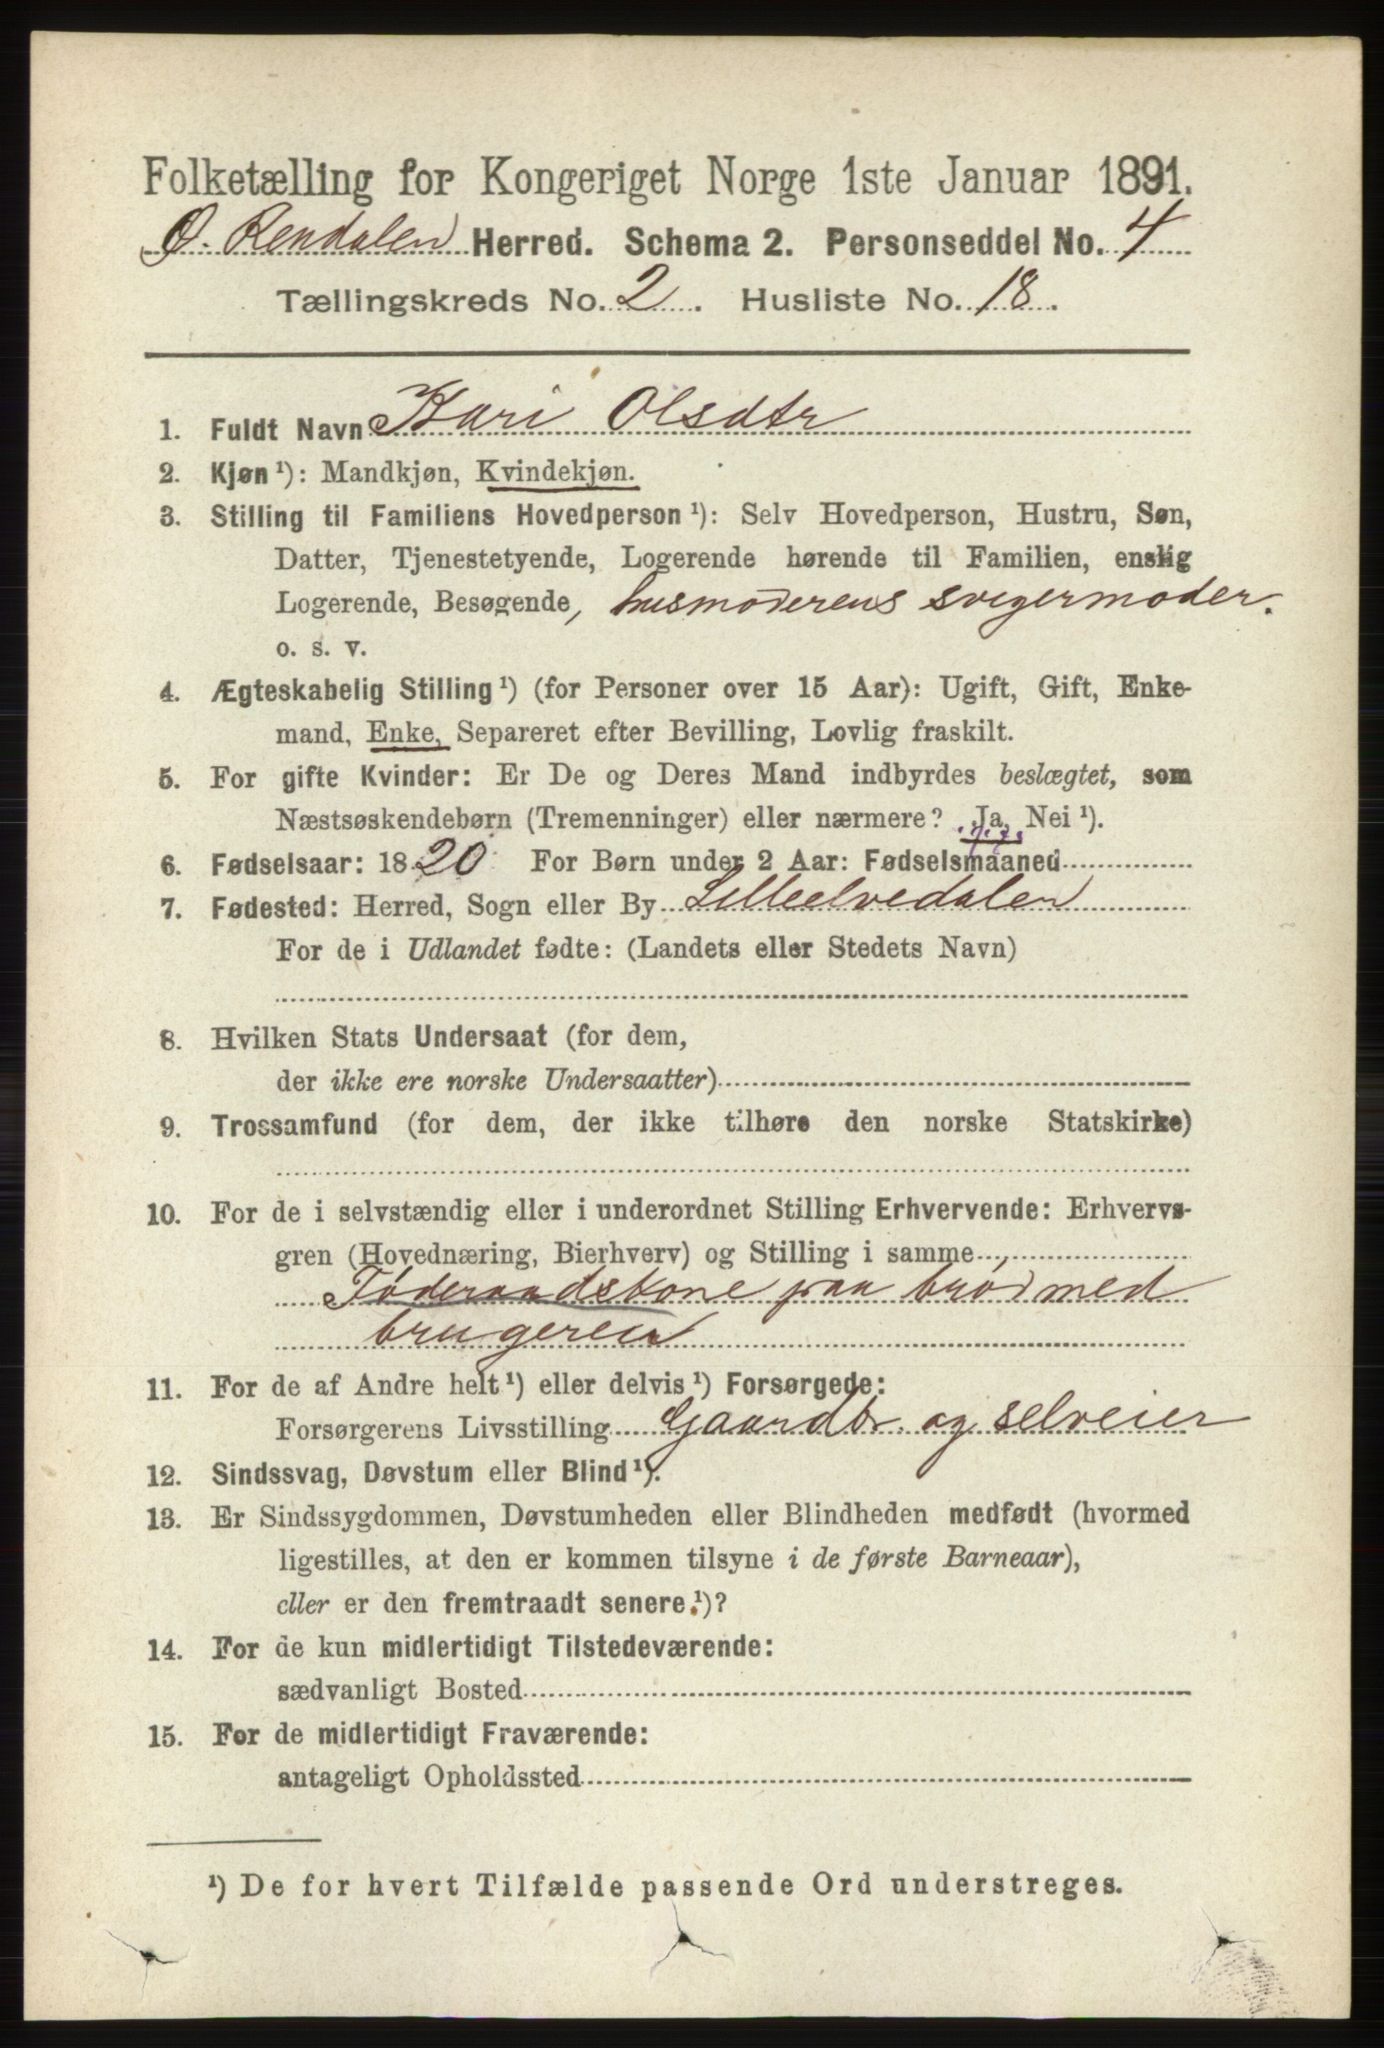 Folketælling for Kongeriget Norge 1ste Januar 1891.
Ø. Rendalen Herred. Schema 2. Personseddel No. 4
Tællingskreds No. 2. Husliste No. 18.
1. Fuldt Navn Kari Olsdtr
2. Kjøn ¹): Mandkjøn, Kvindekjøn.
3. Stilling til Familiens Hovedperson ¹): Selv Hovedperson, Hustru, Søn,
Datter, Tjenestetyende, Logerende hørende til Familien, enslig
Logerende, Besøgende, husmoderens svigermoder.
o. s. v.
4. Ægteskabelig Stilling ¹) (for Personer over 15 Aar): Ugift, Gift, Enke-
mand, Enke, Separeret efter Bevilling, Lovlig fraskilt.
5. For gifte Kvinder: Er De og Deres Mand indbyrdes beslægtet, som
Næstsøskendebørn (Tremenninger) eller nærmere? Ja, Nei ¹).
6. Fødselsaar: 1820 For Børn under 2 Aar: Fødselsmaaned
7. Fødested: Herred, Sogn eller By Lilleelvedalen
For de i Udlandet fødte: (Landets eller Stedets Navn)
8. Hvilken Stats Undersaat (for dem,
der ikke ere norske Undersaatter)
9. Trossamfund (for dem, der ikke tilhøre den norske Statskirke)
10. For de i selvstændig eller i underordnet Stilling Erhvervende: Erhvervs-
gren (Hovednæring, Bierhverv) og Stilling i samme
Føderaadskone paa brød med
brugeren
11. For de af Andre helt ¹) eller delvis ¹) Forsørgede:
Forsørgerens Livsstilling Gaardbr. og selveier
12. Sindssvag, Døvstum eller Blind ¹).
13. Er Sindssygdommen, Døvstumheden eller Blindheden medfødt (hvormed
ligestilles, at den er kommen tilsyne i de første Barneaar),
eller er den fremtraadt senere ¹)?
14. For de kun midlertidigt Tilstedeværende:
sædvanligt Bosted
15. For de midlertidigt Fraværende:
antageligt Opholdssted
¹) De for hvert Tilfælde passende Ord understreges.